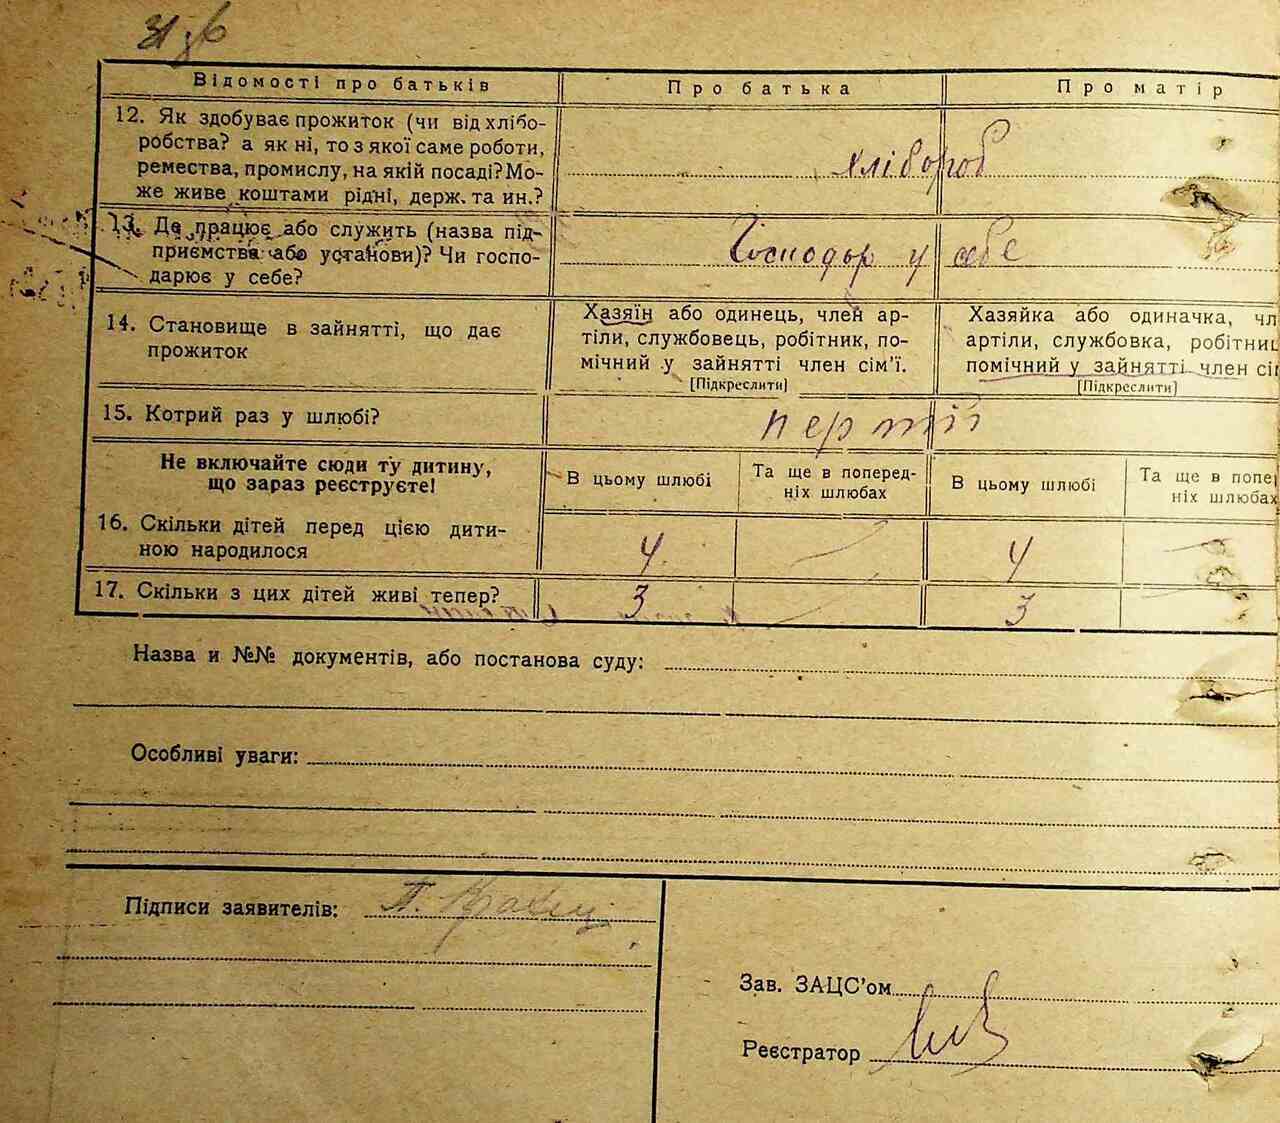 31 зв
Відомості про батьків Про батька Про матір
12. Як здобуває прожиток (чи від хлібо-
робства? а як ні, то з якої саме роботи,
ремества, промислу, на якій посаді? Мо-
же живе коштами рідні, держ. та ин.?
хлібороб
13. Де працює або служить (назва під-
приємства або установи)? Чи госпо-
дарює у себе?
Господар у себе
14. Становище в зайнятті, що дає
прожиток
Хазяїн або одинець, член ар-
тіли, службовець, робітник, по-
мічний у зайнятті член сім'ї.
[Підкреслити]
Хазяйка або одиначка, чл
артіли, службовка, робітниц
помічний у зайнятті член сім
[Підкреслити]
15. Котрий раз у шлюбі? перший
Не включайте сюди ту дитину,
що зараз реєструєте!
В цьому шлюбі
Та ще в поперед-
ніх шлюбах
В цьому шлюбі
Та ще в попер
ніх шлюбах
16. Скільки дітей перед цією дити-
ною народилося
4 4
17. Скільки з цих дітей живі тепер? 3 3
Назва и №№ документів, або постанова суду:
Особливі уваги:
Підписи заявителів:
Зав. ЗАЦС'ом
Реєстратор